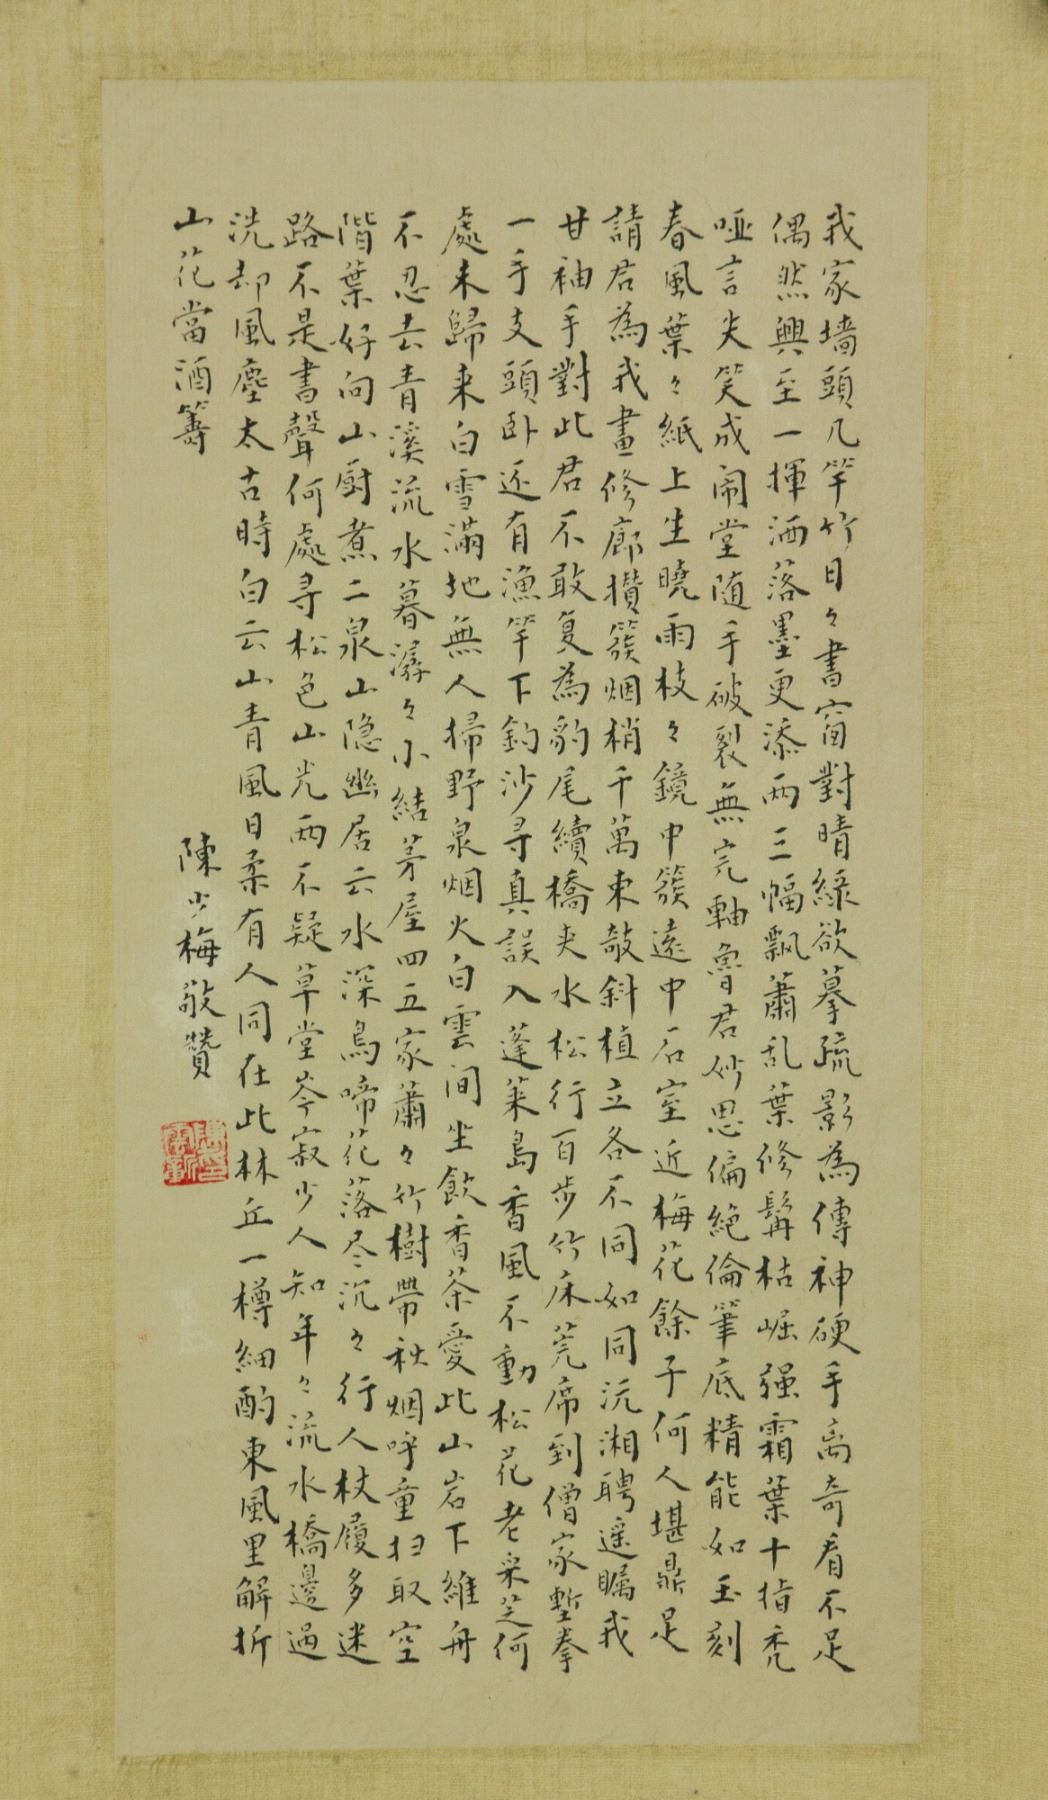 我家墙頭几竿竹日々書窗對晴緑欲摹疏影為傳神硬手离奇看不足
偶然興至一揮洒落墨更添兩三幅飘蕭乱葉修髯枯崛强霜葉十指秃
哑言失笑成闹堂随手破裂無完軸魯君妙思偏絶倫筆底精能如玉刻
春風葉々紙上生曉雨枝々鏡中簇遠中石室近梅花餘子何人堪鼎足
請君為我畫修廊攢簇烟梢千萬束敧斜植立各不同如同沅湘聘遥瞩我
甘袖手對此君不敢复為豹尾續橋夾水松行百步竹床莞席到僧家暫拳
一手支頭卧还有漁竿下釣沙寻真誤入蓬莱島香風不動松花老采芝何
處未歸来白雪滿地無人掃野泉烟火白雲间坐飲香茶愛此山岩下維舟
不忍去青溪流水暮潺々小結茅屋四五家蕭々竹樹帶秋烟呼童扫取空
階葉好向山厨煮二泉山隐幽居云水深鳥啼花落尽沉々行人杖履多迷
路不是書聲何處寻松色山光两不疑草堂岑寂少人知年々流水橋邊過
洗却風塵太古時白云山青風日柔有人同在此林丘一樽細酌東風里解折
山花當酒籌
陳少梅敬贊